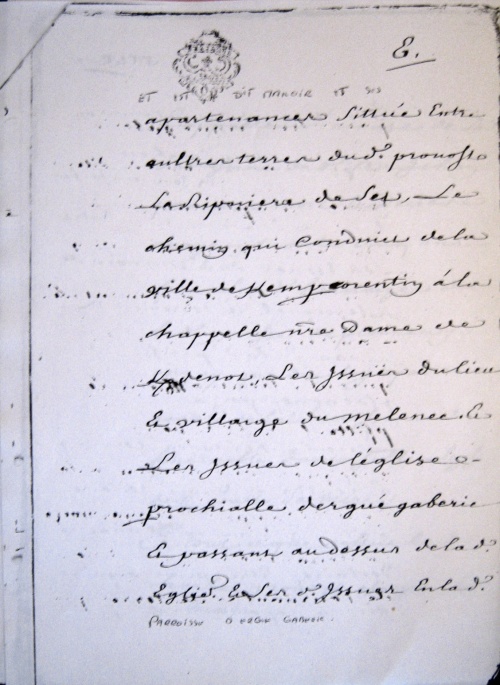 E.
ET EST DIT MANOIR ET SES
apartenances sittuée Entre
aultres terres du d. prouost
La Riponiere de Set, Le
chemin qui Conduict de la
ville de Kempcorentin á la
chappelle nre Dame de
Kdenot, Les Issues du lieu
& village du melenec &
Les Issues de léglise
prochialle dergué gaberic
& passant au dessus de la d.
Eglise & Les d. Issues En la d.
PARROISSE D'ERGUE GABERIC.